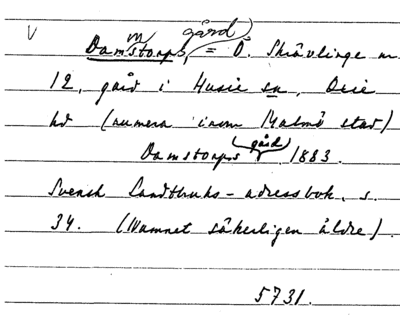 V
Dammstorps gård, = Ö. Skrävlinge nr
12, gård i Husie sn, Oxie
hd (numera inom Malmö stad)
Damstorps gård, 1883.
Svensk Landtbruks-adressbok, s.
34. (Namnet säkerligen äldre).
5731.